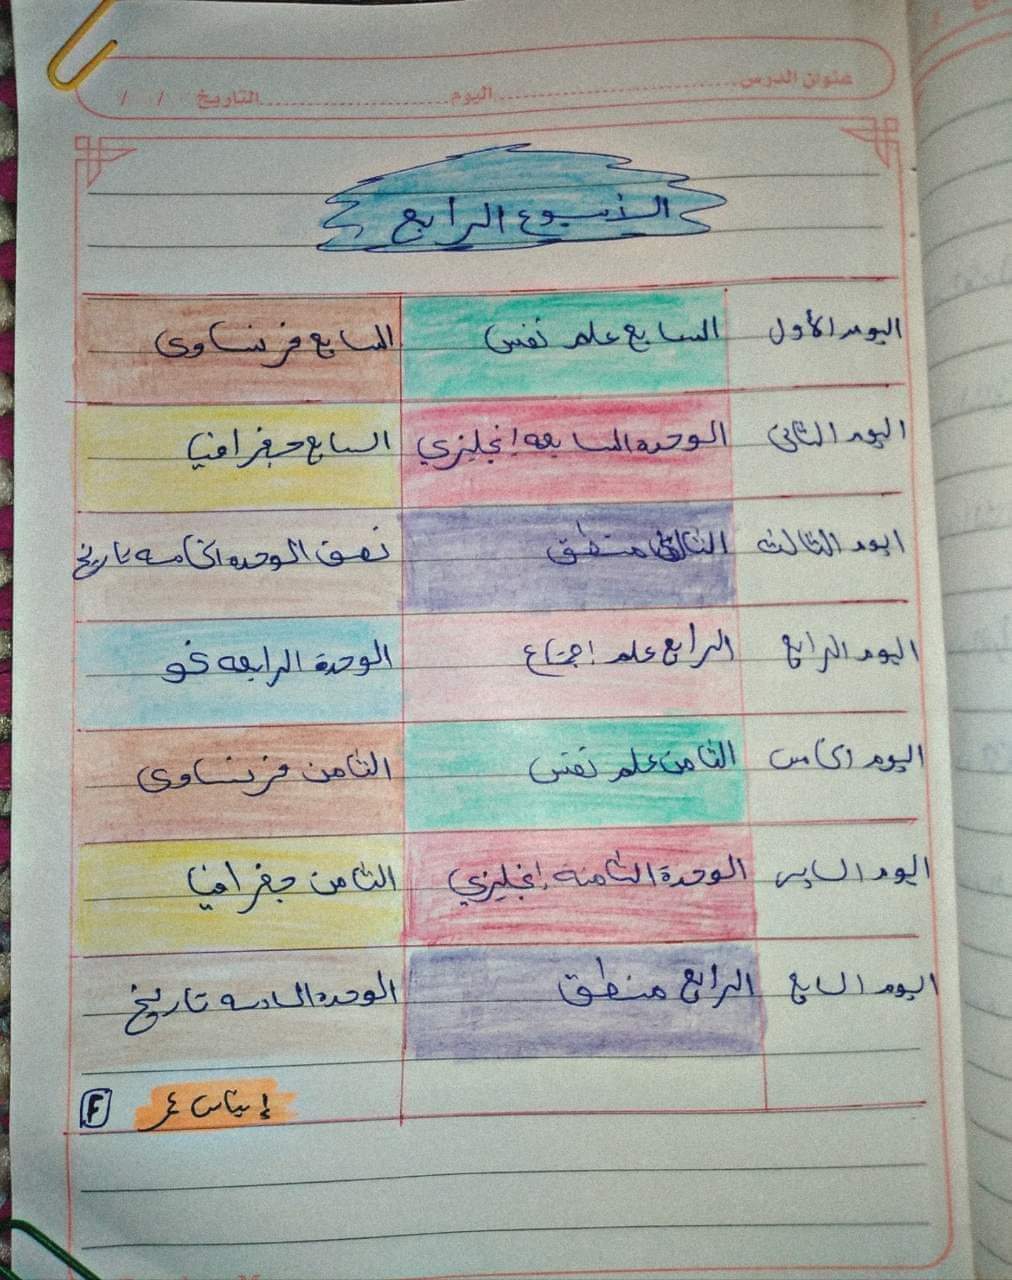 عنوان الدرس اليوم التاريخ / /
الأسبوع الرابع
اليوم الأول السابع علم نفس السابع فرنساوى
اليوم الثانى الوحده السابعه إنجليزي السابع جغرافيا
اليوم الثالث الثالث منطق نصف الوحده الخامسه تاريخ
اليوم الرابع الرابع علم اجتماع الوحدة الرابعه نحو
اليوم الخامس الثامن علم نفس الثامن فرنساوى
اليوم السادس الوحدة الثامنه إنجليزي الثامن جغرافيا
اليوم السابع الرابع منطق الوحده السادسه تاريخ
F